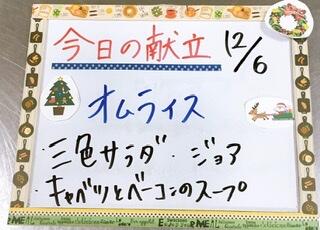 今日の献立 12/6
オムライス
・三色サラダ ・ジョア
・キャベツとベーコンのスープ
MEAL